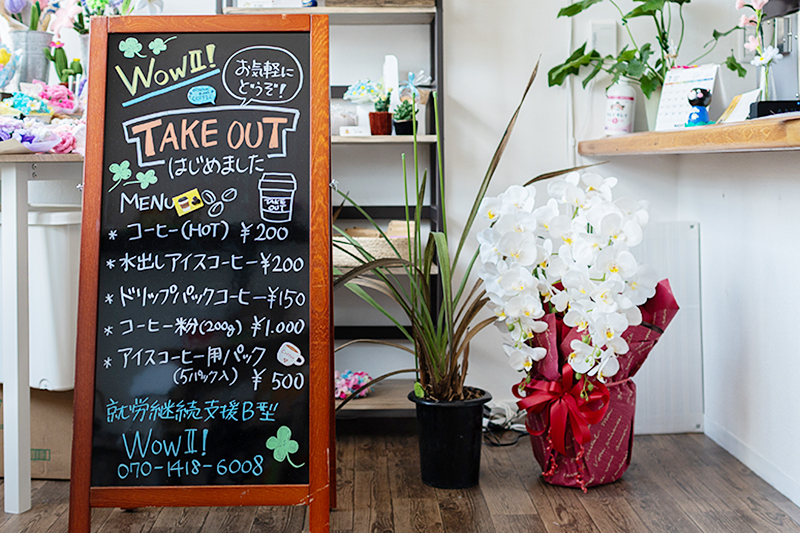 WowⅡ!
お気軽に
どうぞ!
TAKE OUT
はじめました
MENU
TAKE
OUT
* コーヒー(HOT) ¥200
* 水出しアイスコーヒー ¥200
* ドリップパックコーヒー ¥150
* コーヒー粉(200g) ¥1.000
* アイスコーヒー用パック
(5パック入) ¥500
就労継続支援B型
WowⅡ!
070-1418-6008